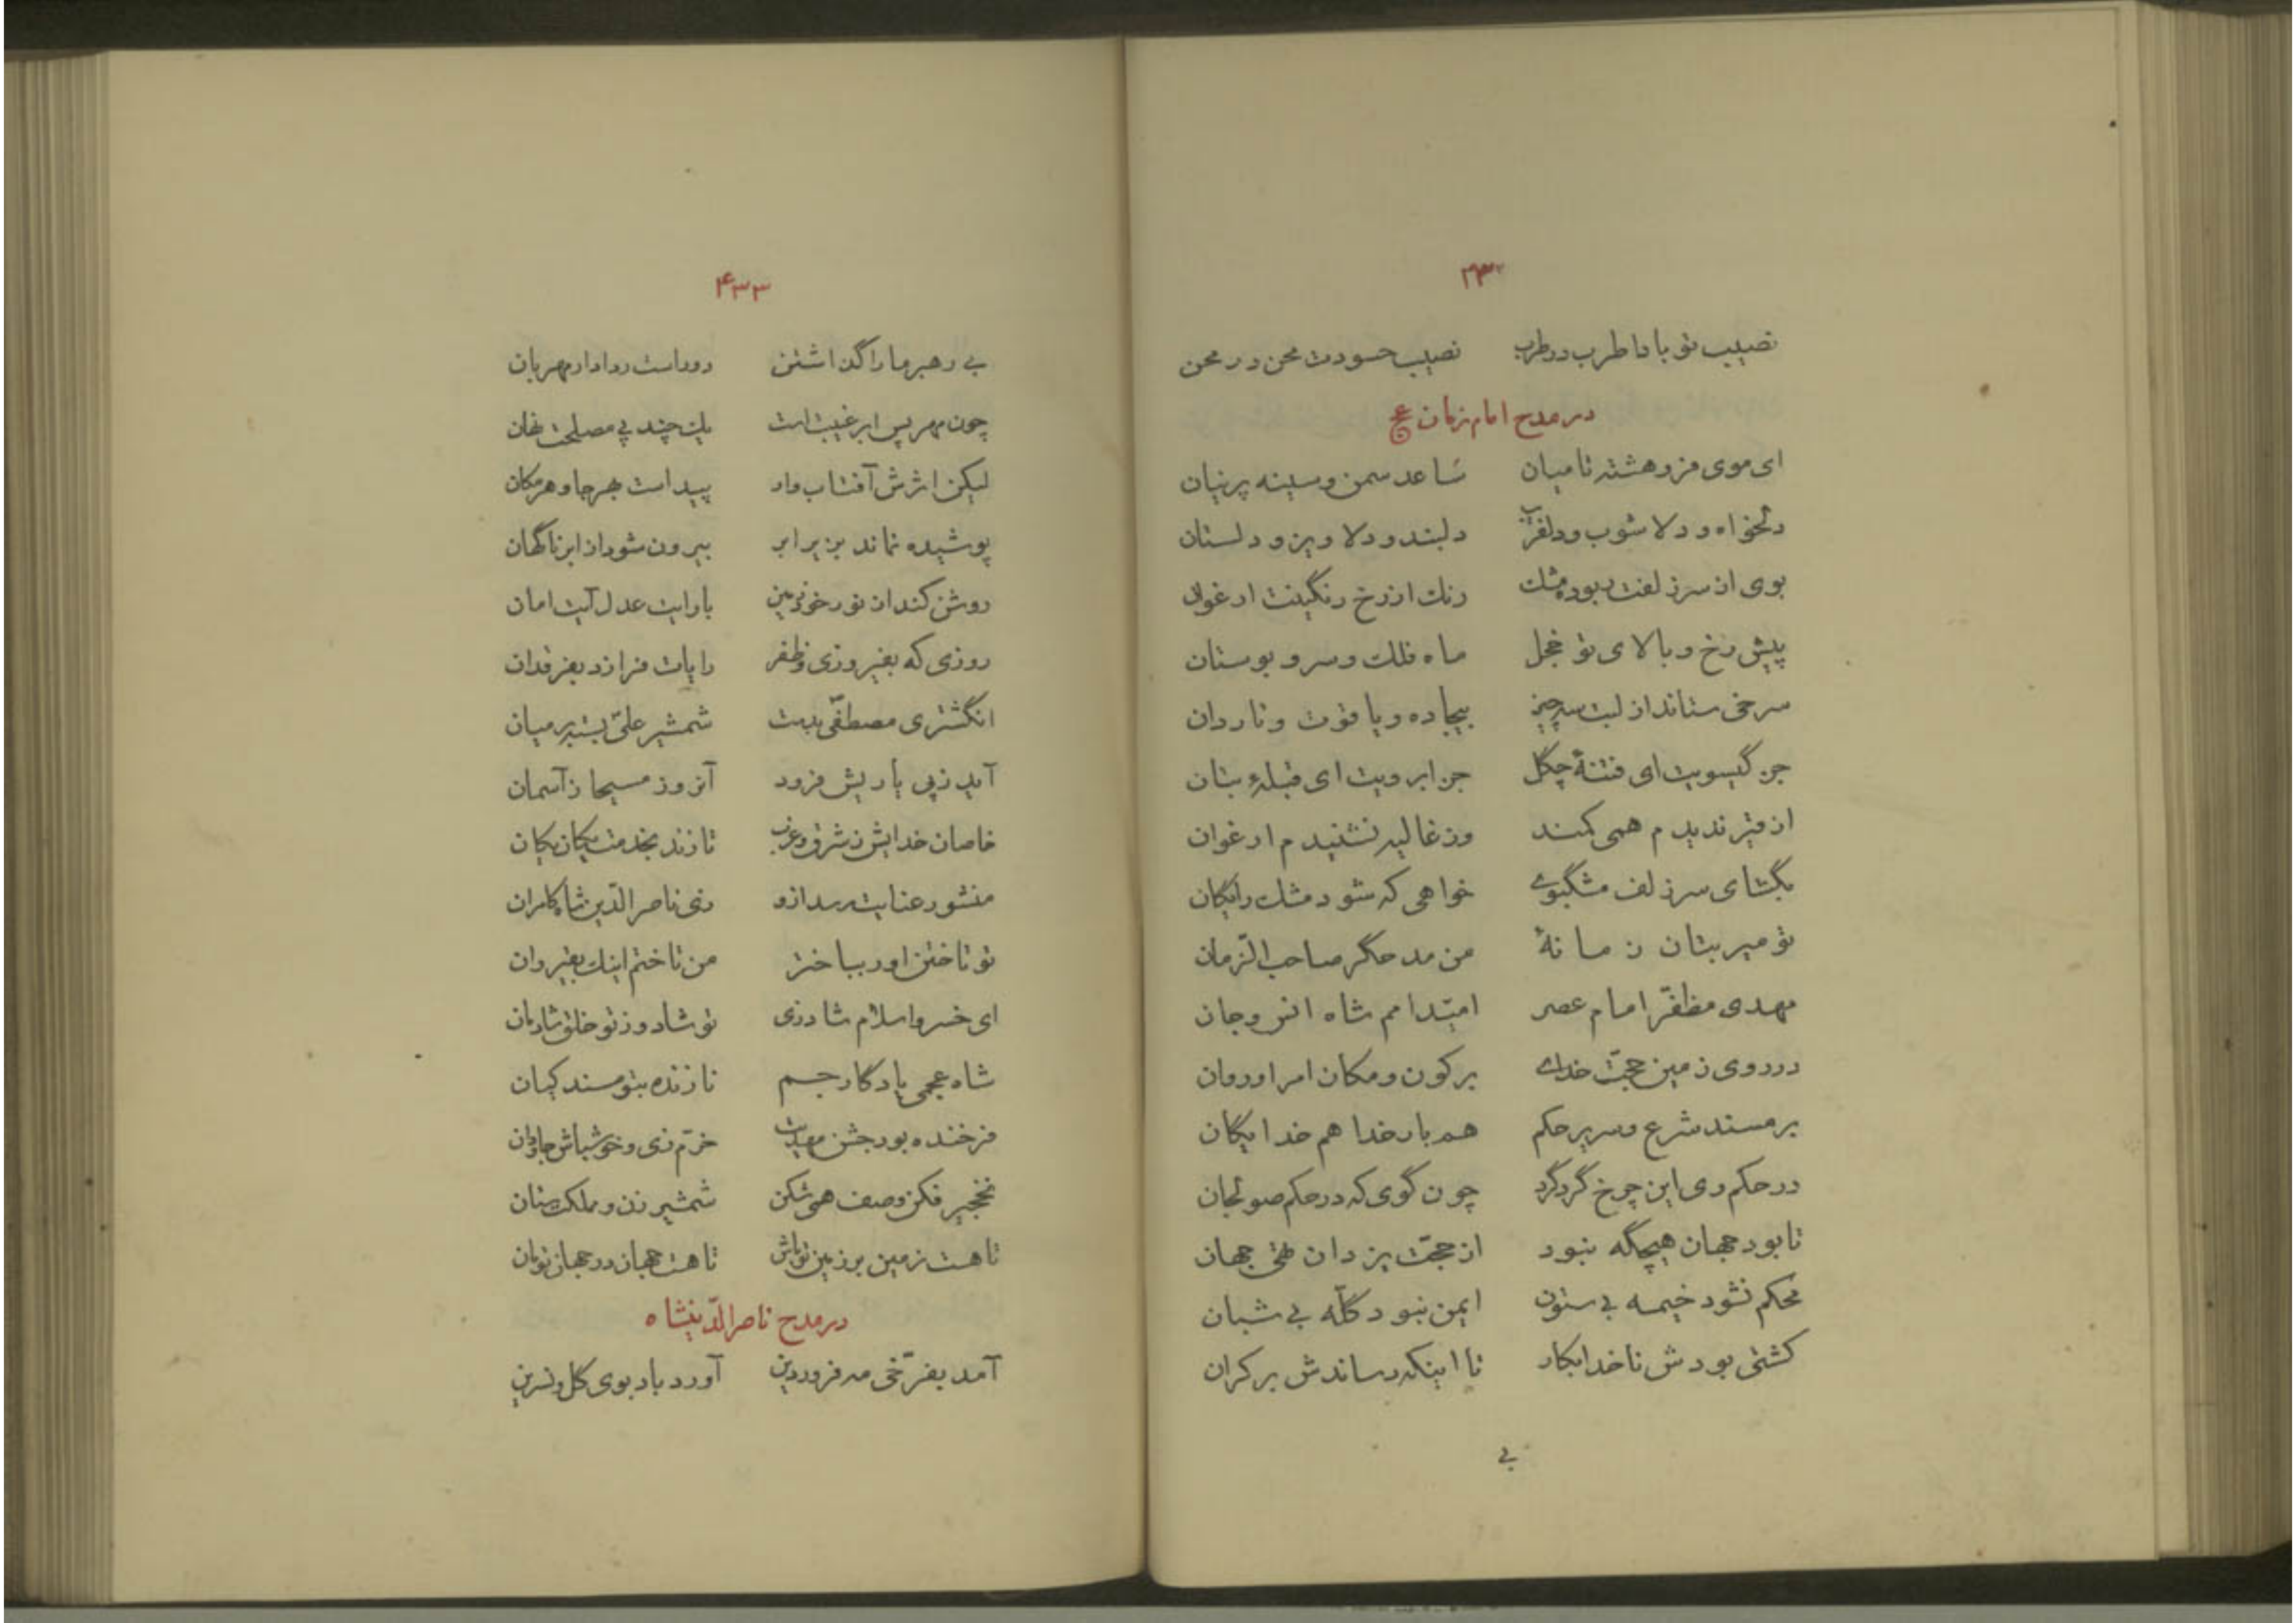 ۴۳۲
نصیب تو بادا طرب در طرب نصیب حسودت محن در محن
در مدح امام زمان عج
ای موی فروهشته تا میان ساعد سمن و سینه پرنیان
دلخواه و دلاشوب و دلفریب دلبند و دلاویز و دلستان
بوی از سر زلفت ربوده مشك رنك از رخ رنگینت ارغوان
پیش رخ و بالای تو خجل ماه فلك و سرو بوستان
سرخی ستاند از لبت سه چیز بیجاده و یاقوت و ناردان
جز گیسویت ای فتنهٔ چگل جز ابرویت ای قبلهٔ بتان
از قیر ندیدم همی کمند وز غالیه نشنیدم ارغوان
بگشای سر زلف مشگبوی خواهی که شود مشك رایگان
تو میر بتان زمانهٔ من مدحگر صاحب الزّمان
مهدی مظفّر امام عصر امّید امم شاه انس و جان
در روی زمین حجّت خدای بر کون و مکان امر او روان
بر مسند شرع و سریر حکم هم بار خدا هم خدایگان
در حکم وی این چرخ گردگرد چون گوی که در حکم صولجان
تا بود جهان هیچگه نبود از حجّت یزدان تهی جهان
محکم نشود خیمه بی ستون ایمن نبود گلّه بی شبان
کشتی بودش ناخدا بکار تا اینکه رساندش بر کران
بی
۴۳۳
بی رهبر ما را گذاشتن دور است ز دادار مهربان
چون مهر پس ابر غیبت است یك چند پی مصلحت نهان
لیکن اثرش آفتاب وار پیداست بهرجا و هر مکان
پوشیده نماند بزیر ابر بیرون شود از ابر ناگهان
روشن کند از نور خود زمین با رایت عدل آیت امان
روزی که بفیروزی و ظفر رایات فرازد بفرقدان
انگشتری مصطفی بدست شمشیر علیّ بسته بر میان
آید ز پی یاریش فرود آنروز مسیحا ز آسمان
خاصان خدایش ز شرق و غرب تازند بخدمت یکان یکان
منشور عنایت رسد ازو زی ناصر الدّین شاه کامران
تو تاختن اور بباختر من تاختم اینك بقیروان
ای خسرو اسلام شاد زی تو شاد و ز تو خلق شادمان
شاه عجمی یادگار جم نازنده بتو مسند کیان
فرخنده بود جشن مهدیت خرّم زی و خوش باش جاودان
نخجیر فکن و صف همی شکن شمشیر زن و مملکت ستان
تا هست زمین بر زمین تو باش تا هست جهان در جهان تو مان
در مدح ناصرالدّینشاه
آمد بفرّخی مه فروردین آورد باد بوی گل و نسرین